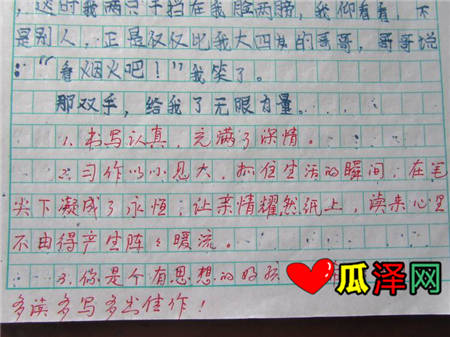 ，这时我两只手挡在我脸两膀，我仰看看，不
是别人，正是仅仅比我大四岁的哥哥，哥哥说
：“看烟火吧！”我笑了。
那双手，给我了无限力量。
1、书写认真，充满了深情。
2、习作以小见大，抓住生活的瞬间，在笔
尖下凝成了永恒；让亲情耀然纸上，读来心里
不由得产生阵々暖流。
3、你是个有思想的好孩
多读多写多出佳作！
瓜泽网